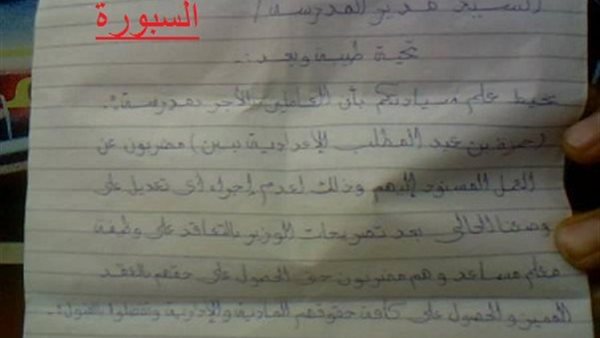 السيد مدير المدرسة /
السبورة
تحية طيبة وبعد :-
نحيط علم سيادتكم بأن العاملين بالأجر بمدرسة :-
(حمزة بن عبد المطلب الإعدادية بنين) مضربون عن
العمل المسنود إليهم وذلك لعدم إجراء أى تعديل على
وضعنا الحالى بعد تصريحات الوزير بالتعاقد على وظيفة
معلم مساعد وهم مضربون حتى الحصول على حقهم بالعقد
المميز والحصول على كافة حقوقهم المادية والإدارية وتفضلوا بقبول :-